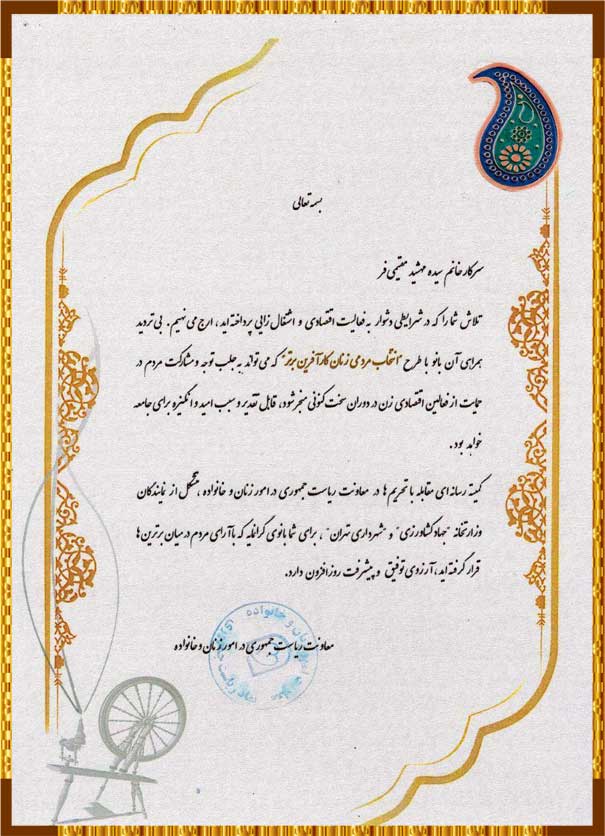 بسمه تعالی
سرکار خانم سیده مهشید مقیمی فر
تلاش شما را که در شرایطی دشوار به فعالیت اقتصادی و اشتغال زایی پرداخته اید، ارج می نهیم. بی تردید
همراهی آن بانو با طرح "انتخاب مردمی زنان کارآفرین برتر" که می تواند به جلب توجه و مشارکت مردم در
حمایت از فعالین اقتصادی زن در دوران سخت کنونی منجر شود، قابل تقدیر و سبب امید و انگیزه برای جامعه
خواهد بود.
کمیته رسانه ای مقابله با تحریم ها در معاونت ریاست جمهوری در امور زنان و خانواده، متشکل از نمایندگان
وزارتخانه "جهاد کشاورزی" و "شهرداری تهران"، برای شما بانوی گرانمایه که با آرای مردم در میان برترین ها
قرار گرفته اید، آرزوی توفیق و پیشرفت روزافزون دارد.
معاونت ریاست جمهوری در امور زنان و خانواده